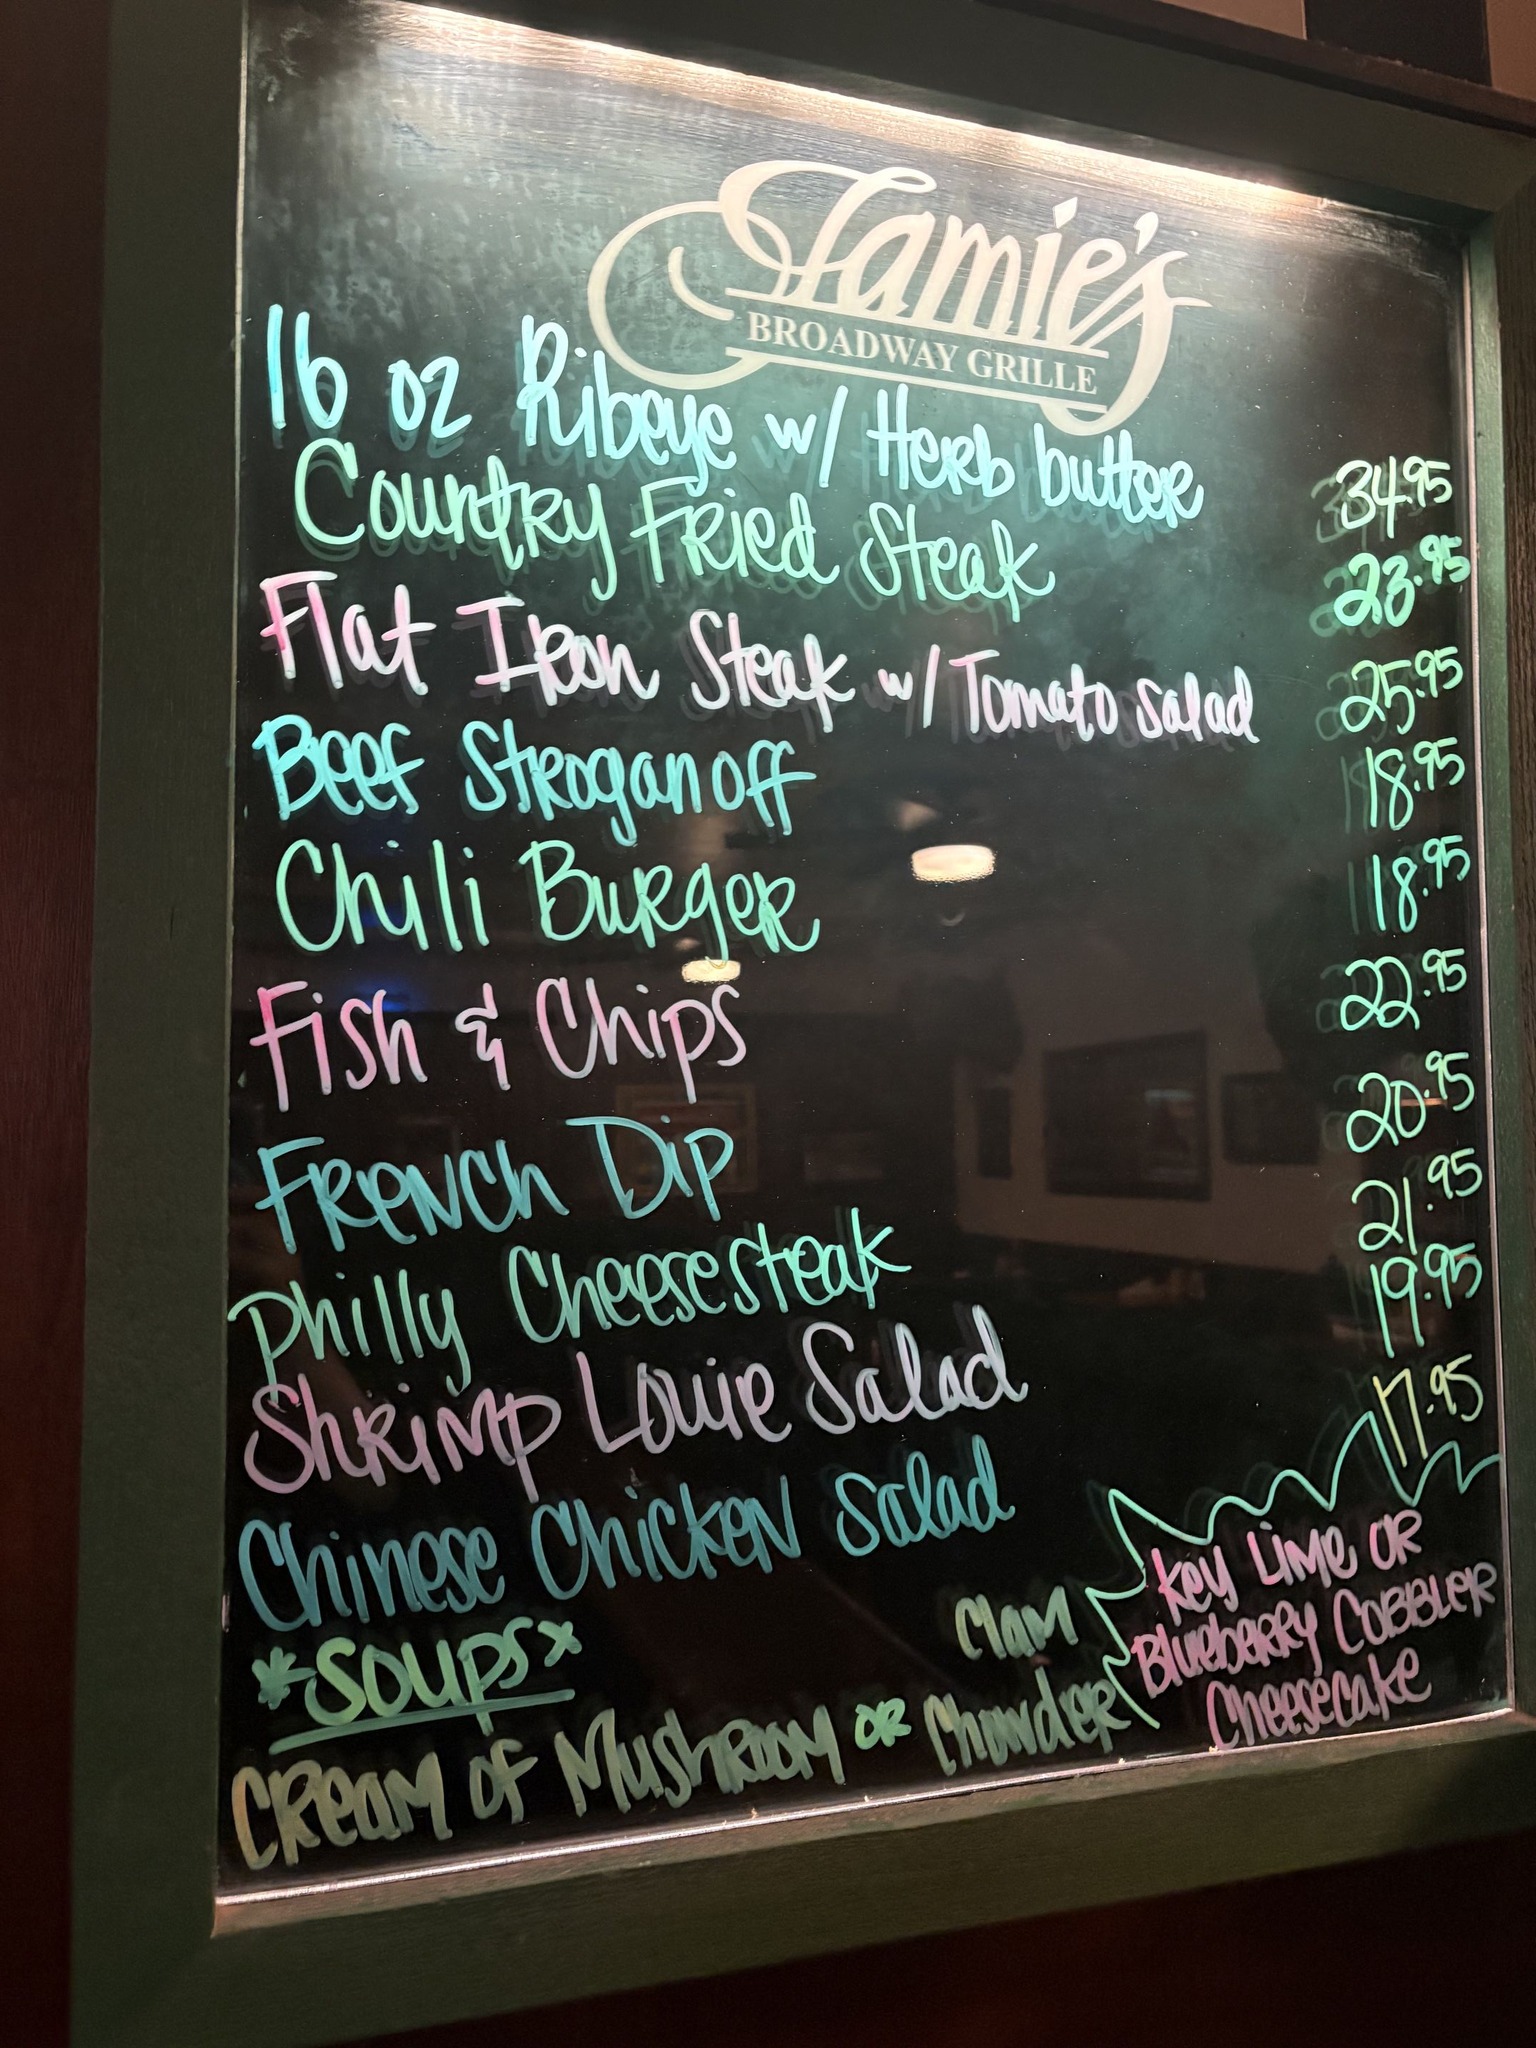 Jamie's
BROADWAY GRILLE
16 oz Ribeye w/ Herb butter 34.95
Country Fried Steak 23.95
Flat Iron Steak w/ Tomato salad 25.95
Beef Stroganoff 18.95
Chili Burger 18.95
Fish & Chips 22.95
French Dip 20.95
Philly Cheesesteak 21.95
Shrimp Louie Salad 19.95
Chinese Chicken Salad 17.95
*Soups*
Cream of Mushroom or Clam Chowder
Key Lime or
Blueberry Cobbler
Cheesecake